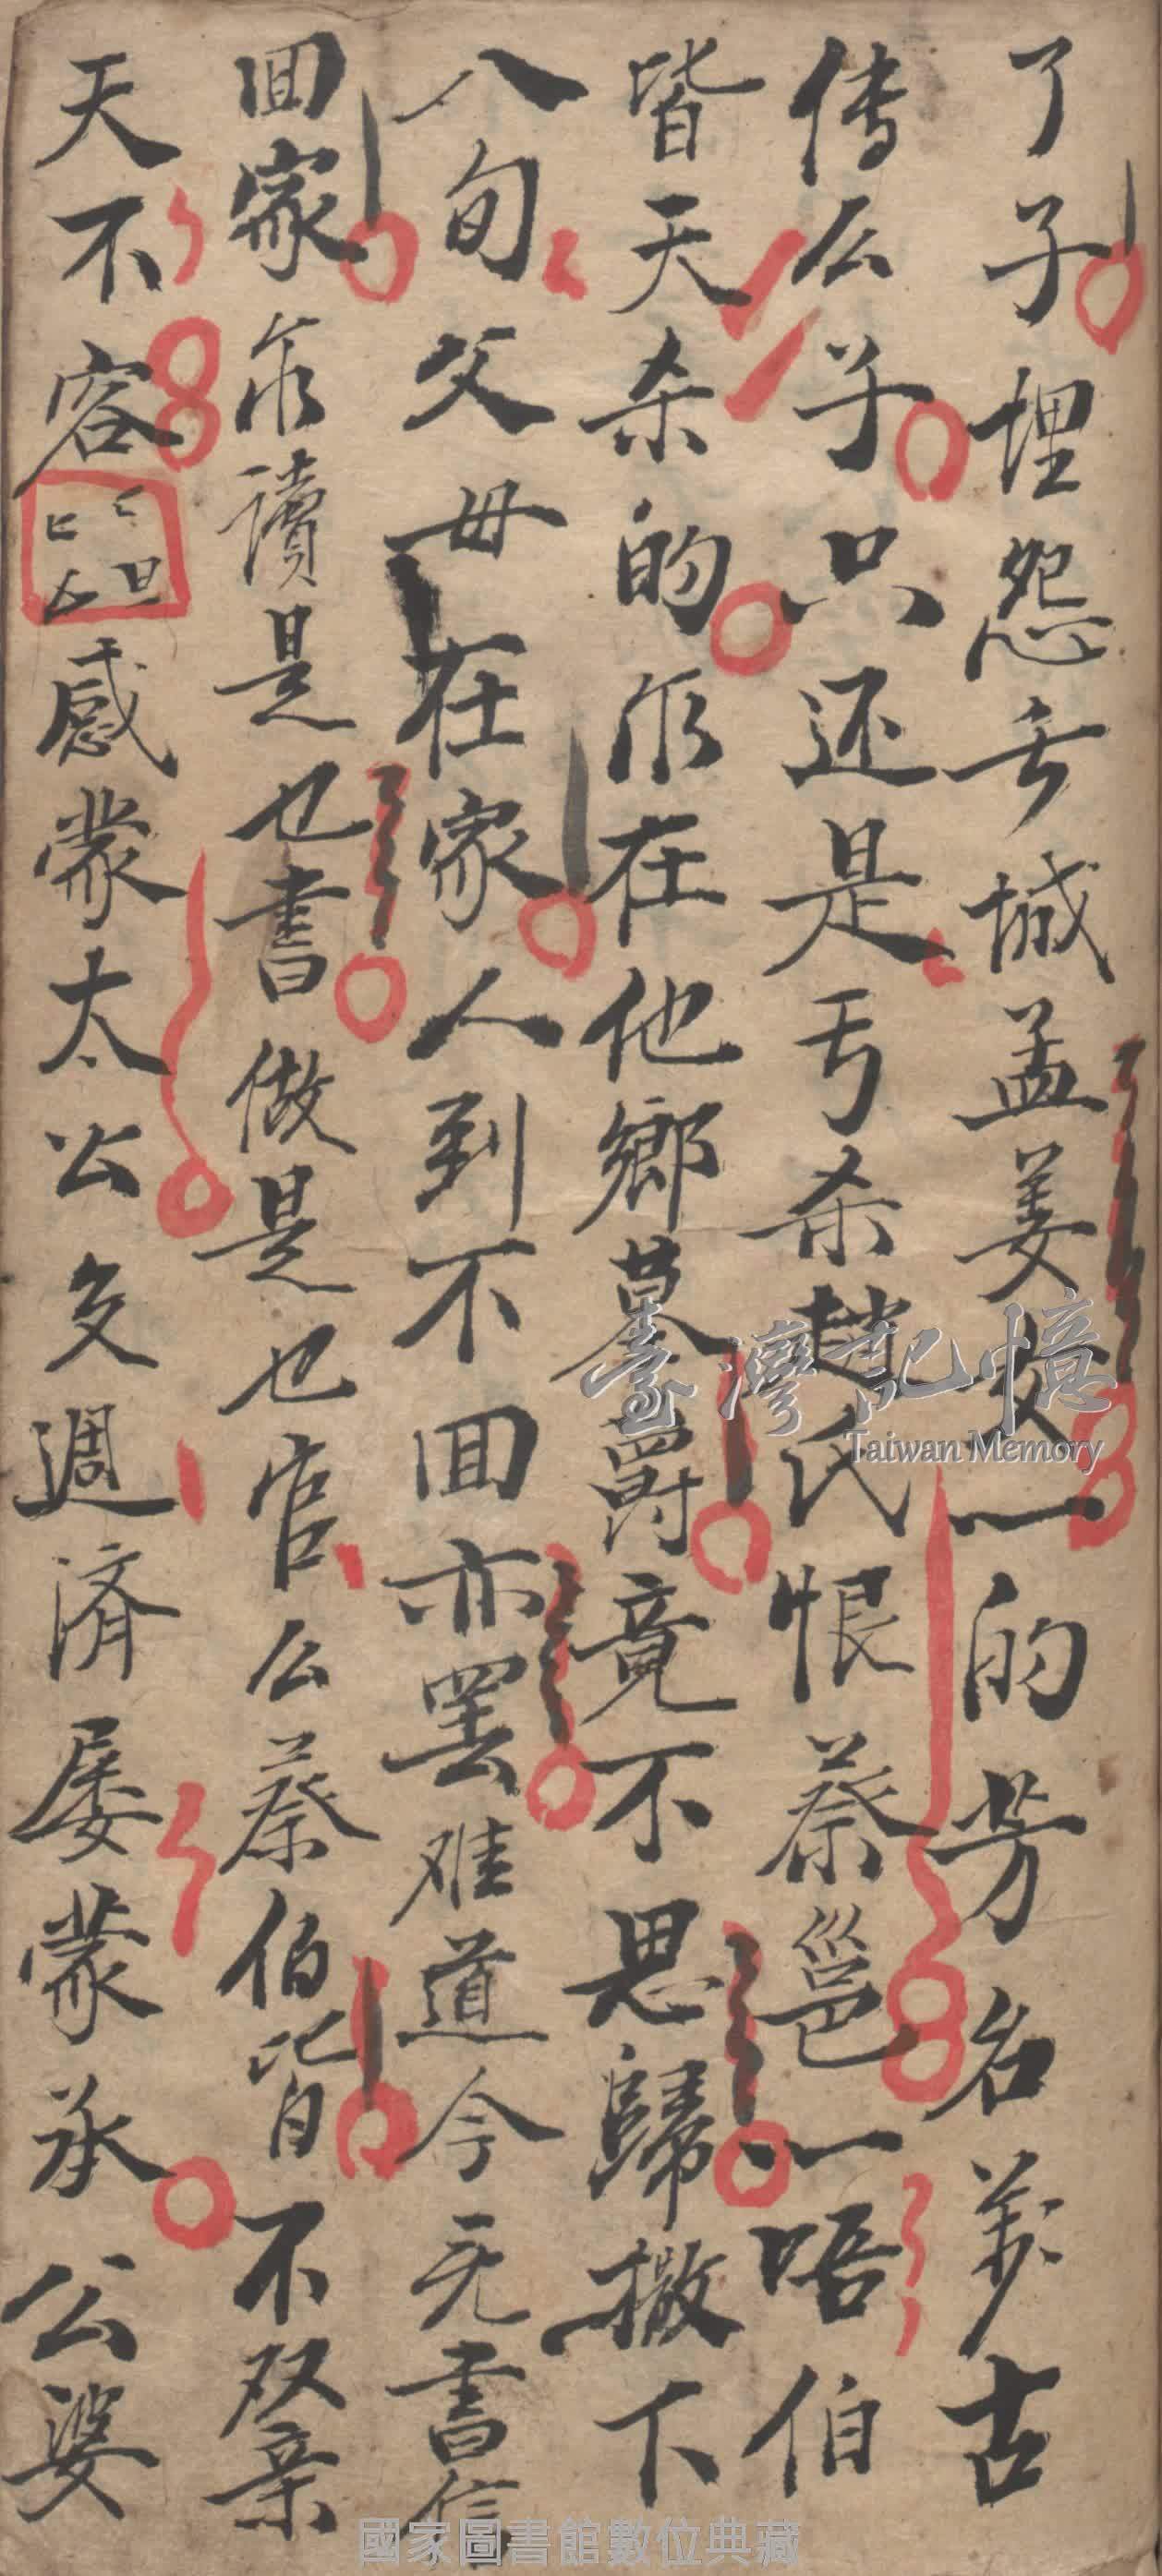 了子埋怨長城孟姜女一的芳名萬古
传么子只还是亐杀趙氏恨蔡邕一唔伯
皆天杀的你在他鄉墓爵竟不思歸撇下
八旬父母在家人到不回亦罢难道今无書信
回家你讀是乜書做是乜官么蔡伯皆不双亲
天不容感蒙太公多週済屡蒙承公婆
臺灣記憶
Taiwan Memory
國家圖書館數位典藏